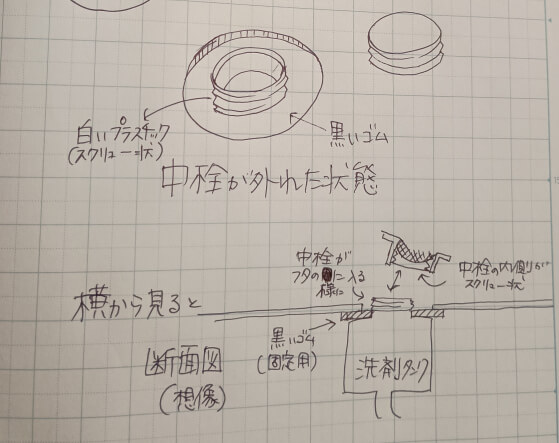 白いプラスチック
(スクリュー状)
黒いゴム
中栓が外れた状態
中栓が
フタの■に入る
様に
中栓の内側が
スクリュー状
横から見ると
黒いゴム
(固定用)
断面図
(想像)
洗剤タンク